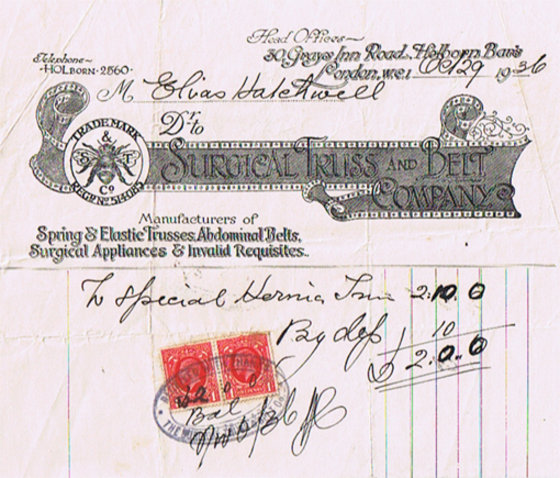 Head Offices~
30, Grays Inn Road, Holborn Bars
London, W.C.1
Telephone~
HOLBORN·2560
Oct 29 1936
M Elias Hatchwell
Dr. to
TRADE MARK
S & T
B
Co
REGD. No
SURGICAL TRUSS AND BELT
COMPANY
Manufacturers of
Spring & Elastic Trusses, Abdominal Belts,
Surgical Appliances & Invalid Requisites.
To Special Hernia Truss 2.10.0
By dep 10
£ 2.0.0
£2 0 0
Bal